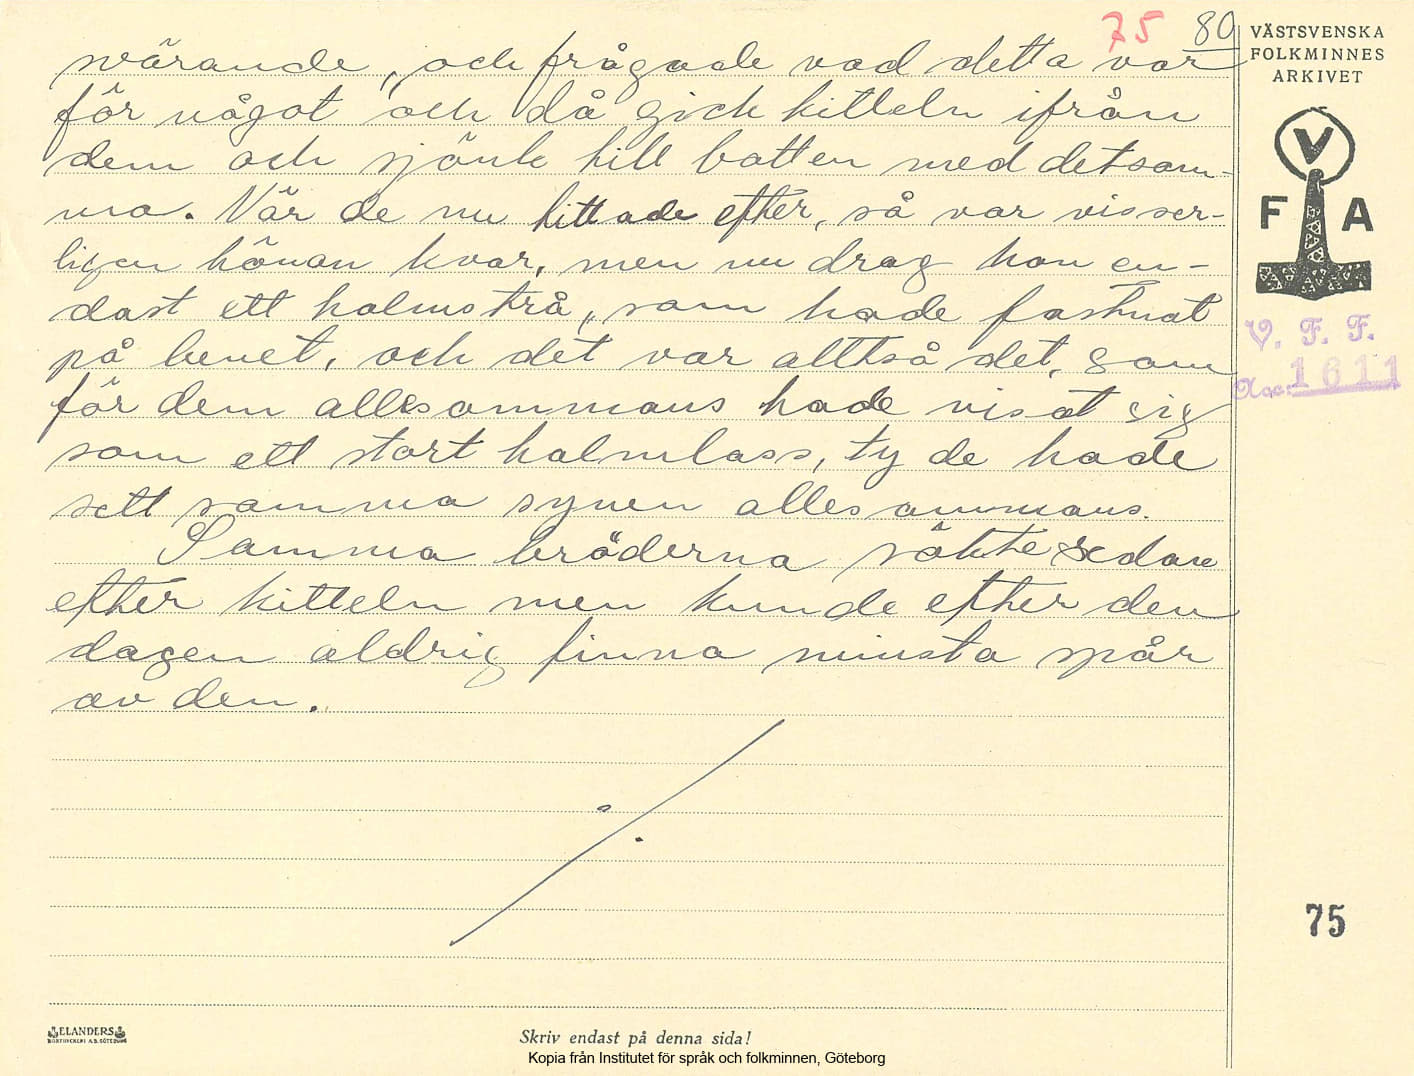 75 80
VÄSTSVENSKA
FOLKMINNES
ARKIVET
V
F A
V. F. F.
Acc: 1611
svärande, och frågade vad detta var
för något och då gick kitteln ifrån
dem och sjönk till batten med detsam-
ma. När de nu tittade efter, så var visser-
ligen hönan kvar, men nu drog hon en-
dast ett halmstrå, som hade fastnat
på benet, och det var alltså det, som
för dem allesammans hade visat sig
som ett stort halmlass, ty de hade
sett samma synen allesammans.
Samma bröderna sökte sedan
efter kitteln men kunde efter den
dagen aldrig finna minsta spår
av den.
75
ELANDERS
BOKTRYCKERI A.B. GÖTEBORG
Skriv endast på denna sida!
Kopia från Institutet för språk och folkminnen, Göteborg